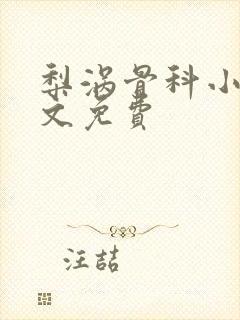 梨涡骨科小
文免費
汪喆